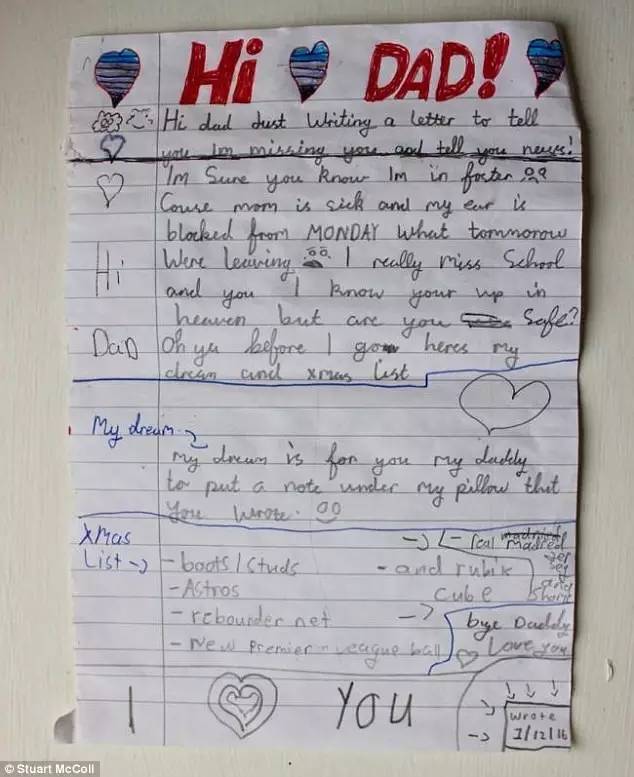 Hi DAD!
Hi dad Just Writing a letter to tell
you Im missing you and tell you news!
Im Sure you know Im in foster
Couse mom is sick and my ear is
blocked from MONDAY What tommorow
Hi Were leaving I really miss School
and you I know your up in
heaven but are you Safe?
DaD Oh ya before I go heres my
dream and xmas list
My dream
my dream is for you my daddy
to put a note under my pillow that
you wrote.
XMas
List -boots/studs
-Astros
-rebounder net
-New Premier-League ball
-and rubix
cube
-real madried
Madread
jersey
and
Shorts
bye Daddy
Love you
I YOU
Wrote
1/12/16
© Stuart McColl